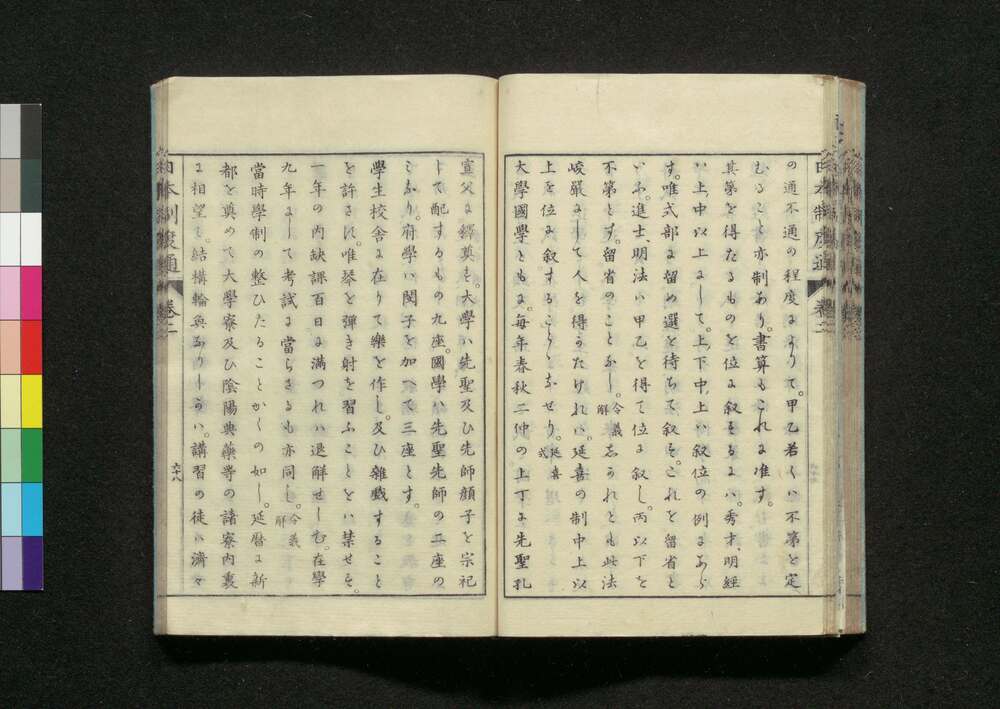 の通不通の程度によりて。甲乙若くハ不第を定
むること亦制あり。書算もこれに准す。
其第を得たるものを位に叙するにハ。秀才、明經
ハ上中以上にして。上下中上ハ叙位の例にあら
す。唯式部に留め選を待ちて叙を。これを留省と
いふ。進士、明法ハ甲乙を得て位に叙し。丙以下を
不第とす。留省のことなし。令義解しかれとも此法
峻嚴にして人を得かたけれハ。延喜の制中上以
上を位に叙することゝなせり。延喜式
大學國學ともに。毎年春秋二仲の上丁に先聖孔
宣父に釋奠も。大學ハ先聖及ひ先師顔子を宗祀
して配するもの九座。國學ハ先聖先師の二座の
ミなり。府學ハ閔子を加へて三座とす。
學生校舍に在りて樂を作し。及ひ雜戲すること
を許さす。唯琴を彈き射を習ふことをハ禁せも。
一年の内缺課百日に滿つれハ退解せしむ。在學
九年にして考試に當らさるも亦同し。令義解
當時學制の整ひたることかくの如し。延暦に新
都を奠めて大學寮及ひ陰陽典藥等の諸寮内裏
に相望も。結構輪奐なりしかハ。講習の徒ハ濟々
日本制度通
卷二
六十八